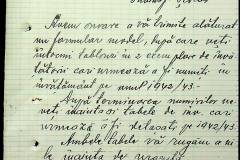 Avem onoare a vă trimite alăturat
un formular model, după care veți
întocmi tabloul în 2 exemplare de învă-
țători cari urmează a fi numiți în
învățământ pe anul 1942/43.-
După terminarea numirilor
veți înainta și tabele de înv. cari
urmează a fi detașați pe 1942/43.-
Ambele tabele vă rugăm a ni
le înainta de urgență